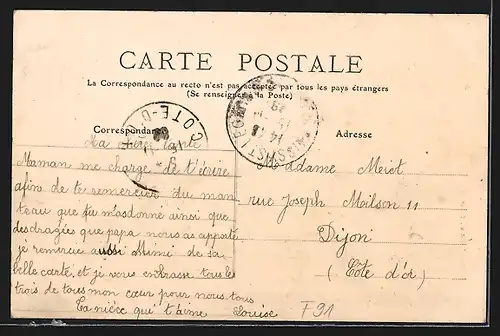 CARTE POSTALE
La Correspondance au recto n'est pas acceptée par tous les pays étrangers
(Se renseigner à la Poste)
Correspondance
Adresse
COTE-D'
Ma chère tante
Maman me charge de t'écrire
afin de te remercier du man
teau que tu m'as donné ainsi que
des dragées que papa nous as apporté
je remercie aussi Mimi de sa
belle carte et je vous embrasse tous les
trois de tous mon cœur pour nous tous
Ta nièce qui t'aime Louise
Madame Meiot
rue Joseph Milson 11
Dijon
(Côte d'or)
F 91